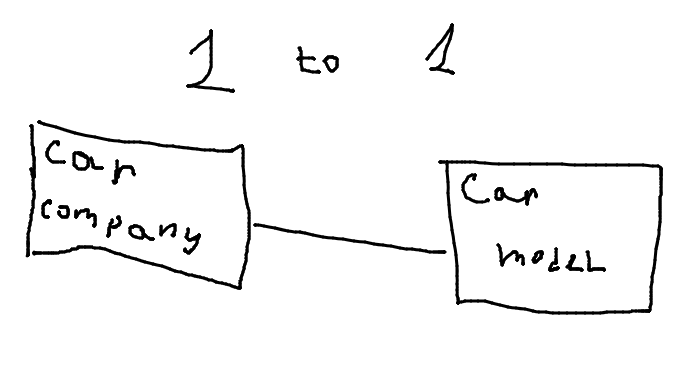 1 to 1
Car
company
Car
model